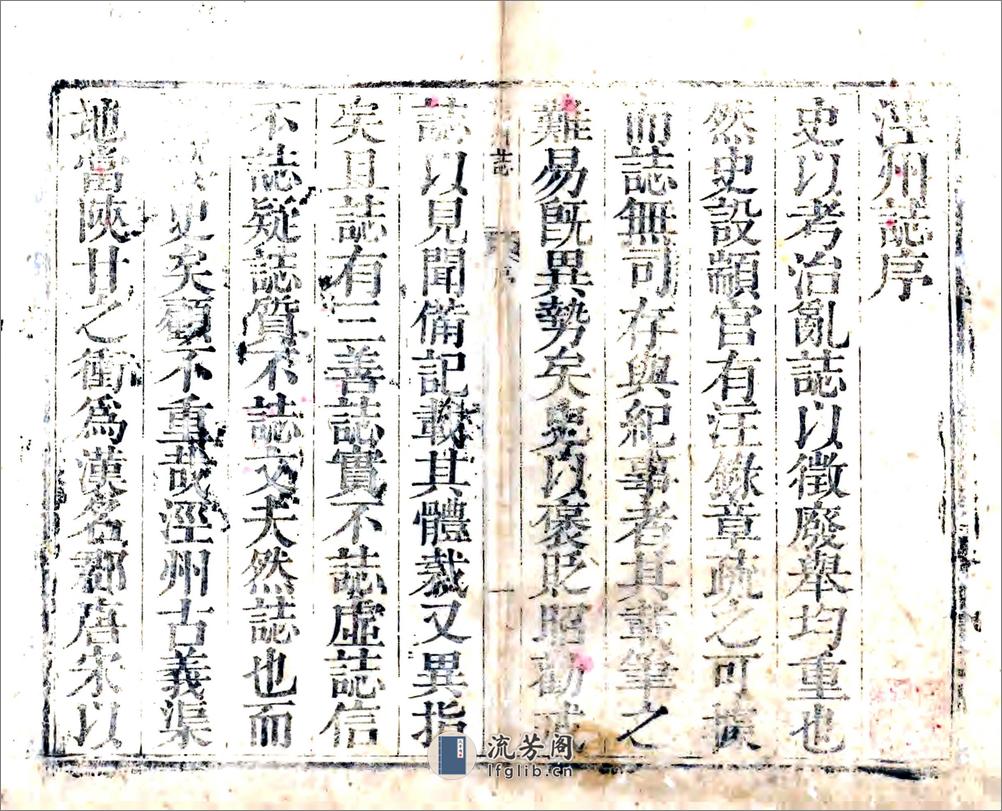 涇州誌序
史以考治亂誌以徵廢舉均重也
然史設顓官有注錄章疏之可據
而誌無司存與紀事者其載筆之
難易既異勢矣史以褒貶昭勸戒
誌 序
誌以見聞備記載其體裁又異指
矣且誌有三善誌實不誌虛誌信
不誌疑誌質不誌文夫然誌也而
史矣顧不重哉涇州古義渠
地當陝甘之衝為漢名郡唐宋以
流芳阁
lfglib.cn